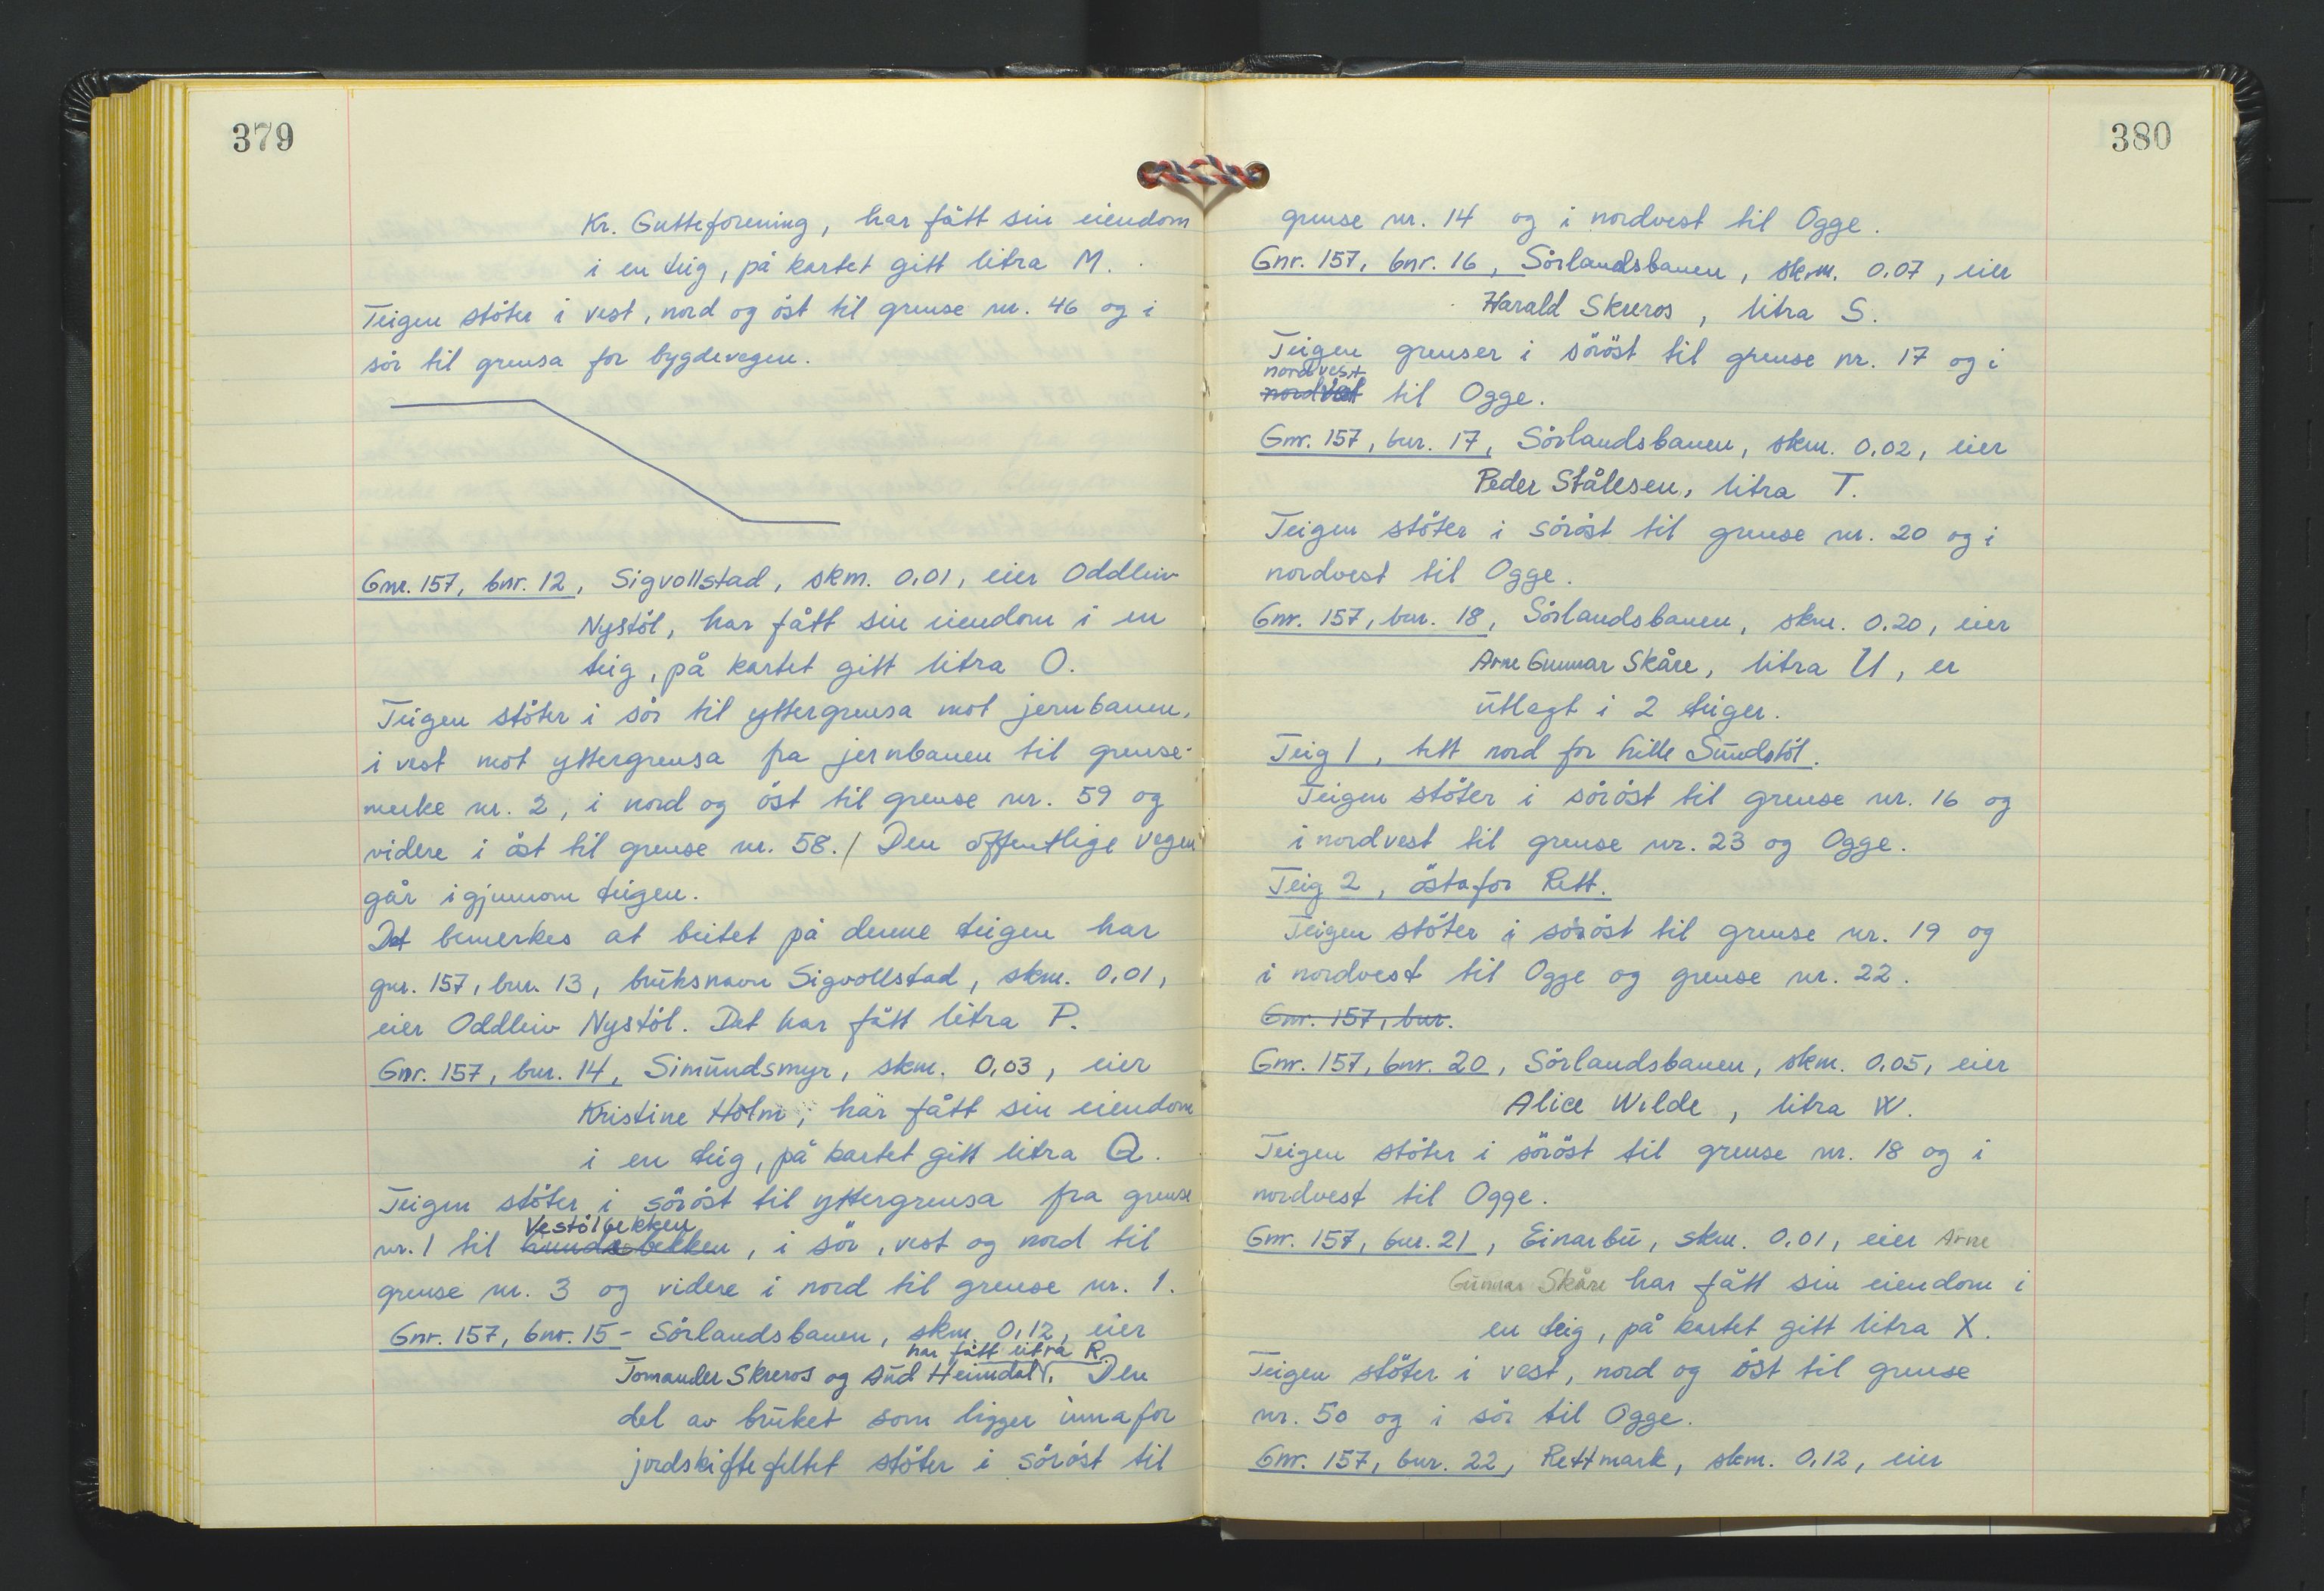 379
Kr. Gutteforening, har fått sin eiendom
i en teig, på kartet gitt litra M.
Teigen stöter i vest, nord og öst til grense nr. 46 og i
sör til grensa for bygdevegen.
Gnr. 157, bnr. 12, Sigvollstad, skm. 0,01, eier Oddleiv
Nystöl, har fått sin eiendom i en
teig, på kartet gitt litra O.
Teigen stöter i sör til yttergrensa mot jernbanen,
i vest mot yttergrensa fra jernbanen til grense-
merke nr. 2, i nord og öst til grense nr. 59 og
videre i öst til grense nr. 58./ Den offentlige vegen
går igjennom teigen.
Det bemerkes at beitet på denne teigen har
gnr. 157, bnr. 13, bruksnavn Sigvollstad, skm. 0,01,
eier Oddleiv Nystöl. Det har fått litra P.
Gnr. 157, bnr. 14, Simundsmyr, skm. 0,03, eier
Kristine Holm, har fått sin eiendom
i en teig, på kartet gitt litra Q.
Teigen stöter i söröst til yttergrensa fra grense
Vestölbekken
nr. 1 til , i sör, vest og nord til
grense nr. 3 og videre i nord til grense nr. 1.
Gnr. 157, bnr. 15 - Sörlandsbanen, skm. 0,12, eier
har fått litra R.
Tomander Skreros og Aud Heimdal. Den
del av bruket som ligger innafor
jordskiftefeltet stöter i söröst til
380
grense nr. 14 og i nordvest til Ogge.
Gnr. 157, bnr. 16, Sörlandsbanen, skm. 0,07, eier
Harald Skreros, litra S.
Teigen grenser i söröst til grense nr. 17 og i
nordvest
nordvest til Ogge.
Gnr. 157, bnr. 17, Sörlandsbanen, skm. 0,02, eier
Peder Stålesen, litra T.
Teigen stöter i söröst til grense nr. 20 og i
nordvest til Ogge.
Gnr. 157, bnr. 18, Sörlandsbanen, skm. 0,20, eier
Arne Gunnar Skåre, litra U, er
utlagt i 2 teiger.
Teig 1, tett nord for Lille Sundstöl.
Teigen stöter i söröst til grense nr. 16 og
i nordvest til grense nr. 23 og Ogge.
Teig 2, östafor Rett.
Teigen stöter i söröst til grense nr. 19 og
i nordvest til Ogge og grense nr. 22.
Gnr. 157, bnr.
Gnr. 157, bnr. 20, Sörlandsbanen, skm. 0,05, eier
Alice Wilde, litra W.
Teigen stöter i söröst til grense nr. 18 og i
nordvest til Ogge.
Gnr. 157, bnr. 21, Einarbu, skm. 0,01, eier Arne
Gunnar Skåre har fått sin eiendom i
en teig, på kartet gitt litra X.
Teigen stöter i vest, nord og öst til grense
nr. 50 og i sör til Ogge.
Gnr. 157, bnr. 22, Rettmark, skm. 0,12, eier